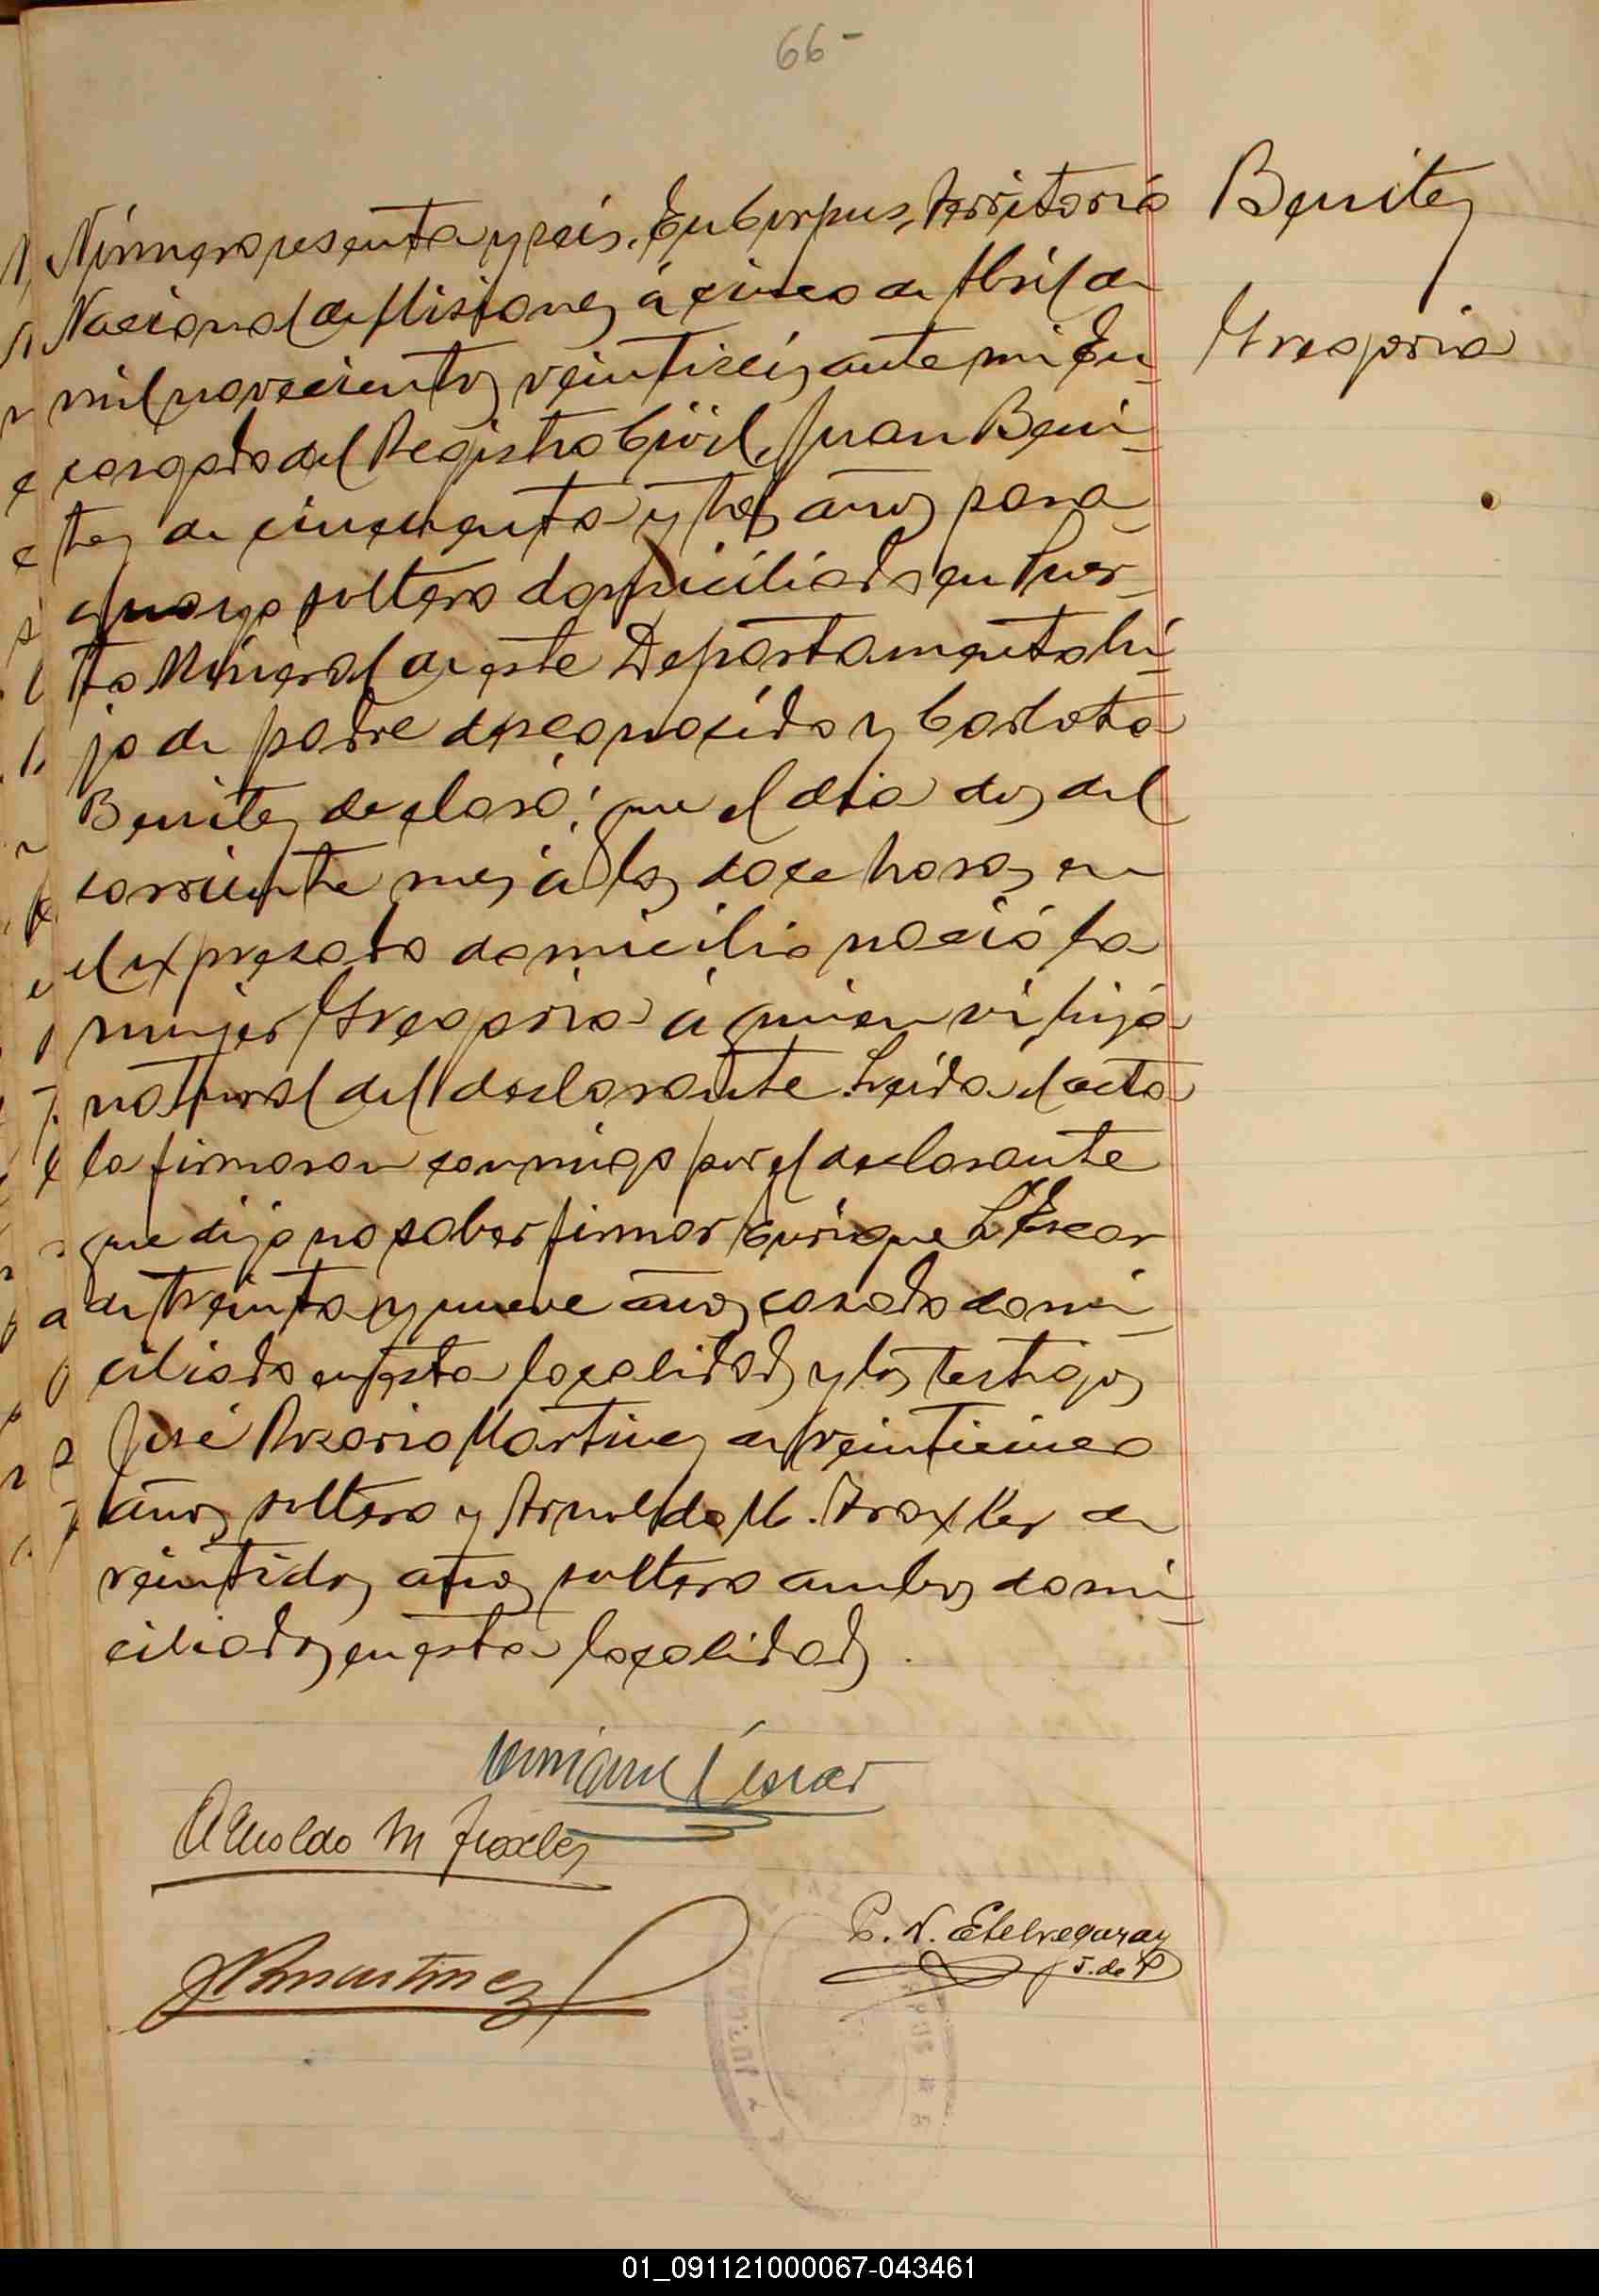 66-
Benitez
Gregoria
Número sesenta y seis. En Corpus, Territorio
Nacional de Misiones á cinco de Abril de
mil novecientos veintiseis, ante mi En-
cargado del Registro Civil, Juan Beni-
tez de cincuenta y tres años para-
guayo soltero domiciliado en Puer-
to Mineral de este Departamento hi-
jo de padre desconocido y Carlota
Benitez declaró: que el dia dos del
corriente mes á las doce horas en
el expresado domicilio nació la
mujer Gregoria á quien vi hija
natural del declarante. Leída el acta
la firmaron conmigo por el declarante
que dijo no saber firmar Enrique L'Escar
de treinta y nueve años casado domi-
ciliado en esta localidad y los testigos
José Rosario Martinez de veinticinco
años soltero y Arnoldo M. Traxler de
veintidos años soltero ambos domi-
ciliados en esta localidad.
Enrique L'Escar
Arnoldo M Traxler
J R Martinez
P. N. Etchegaray
J. de P
01_091121000067-043461